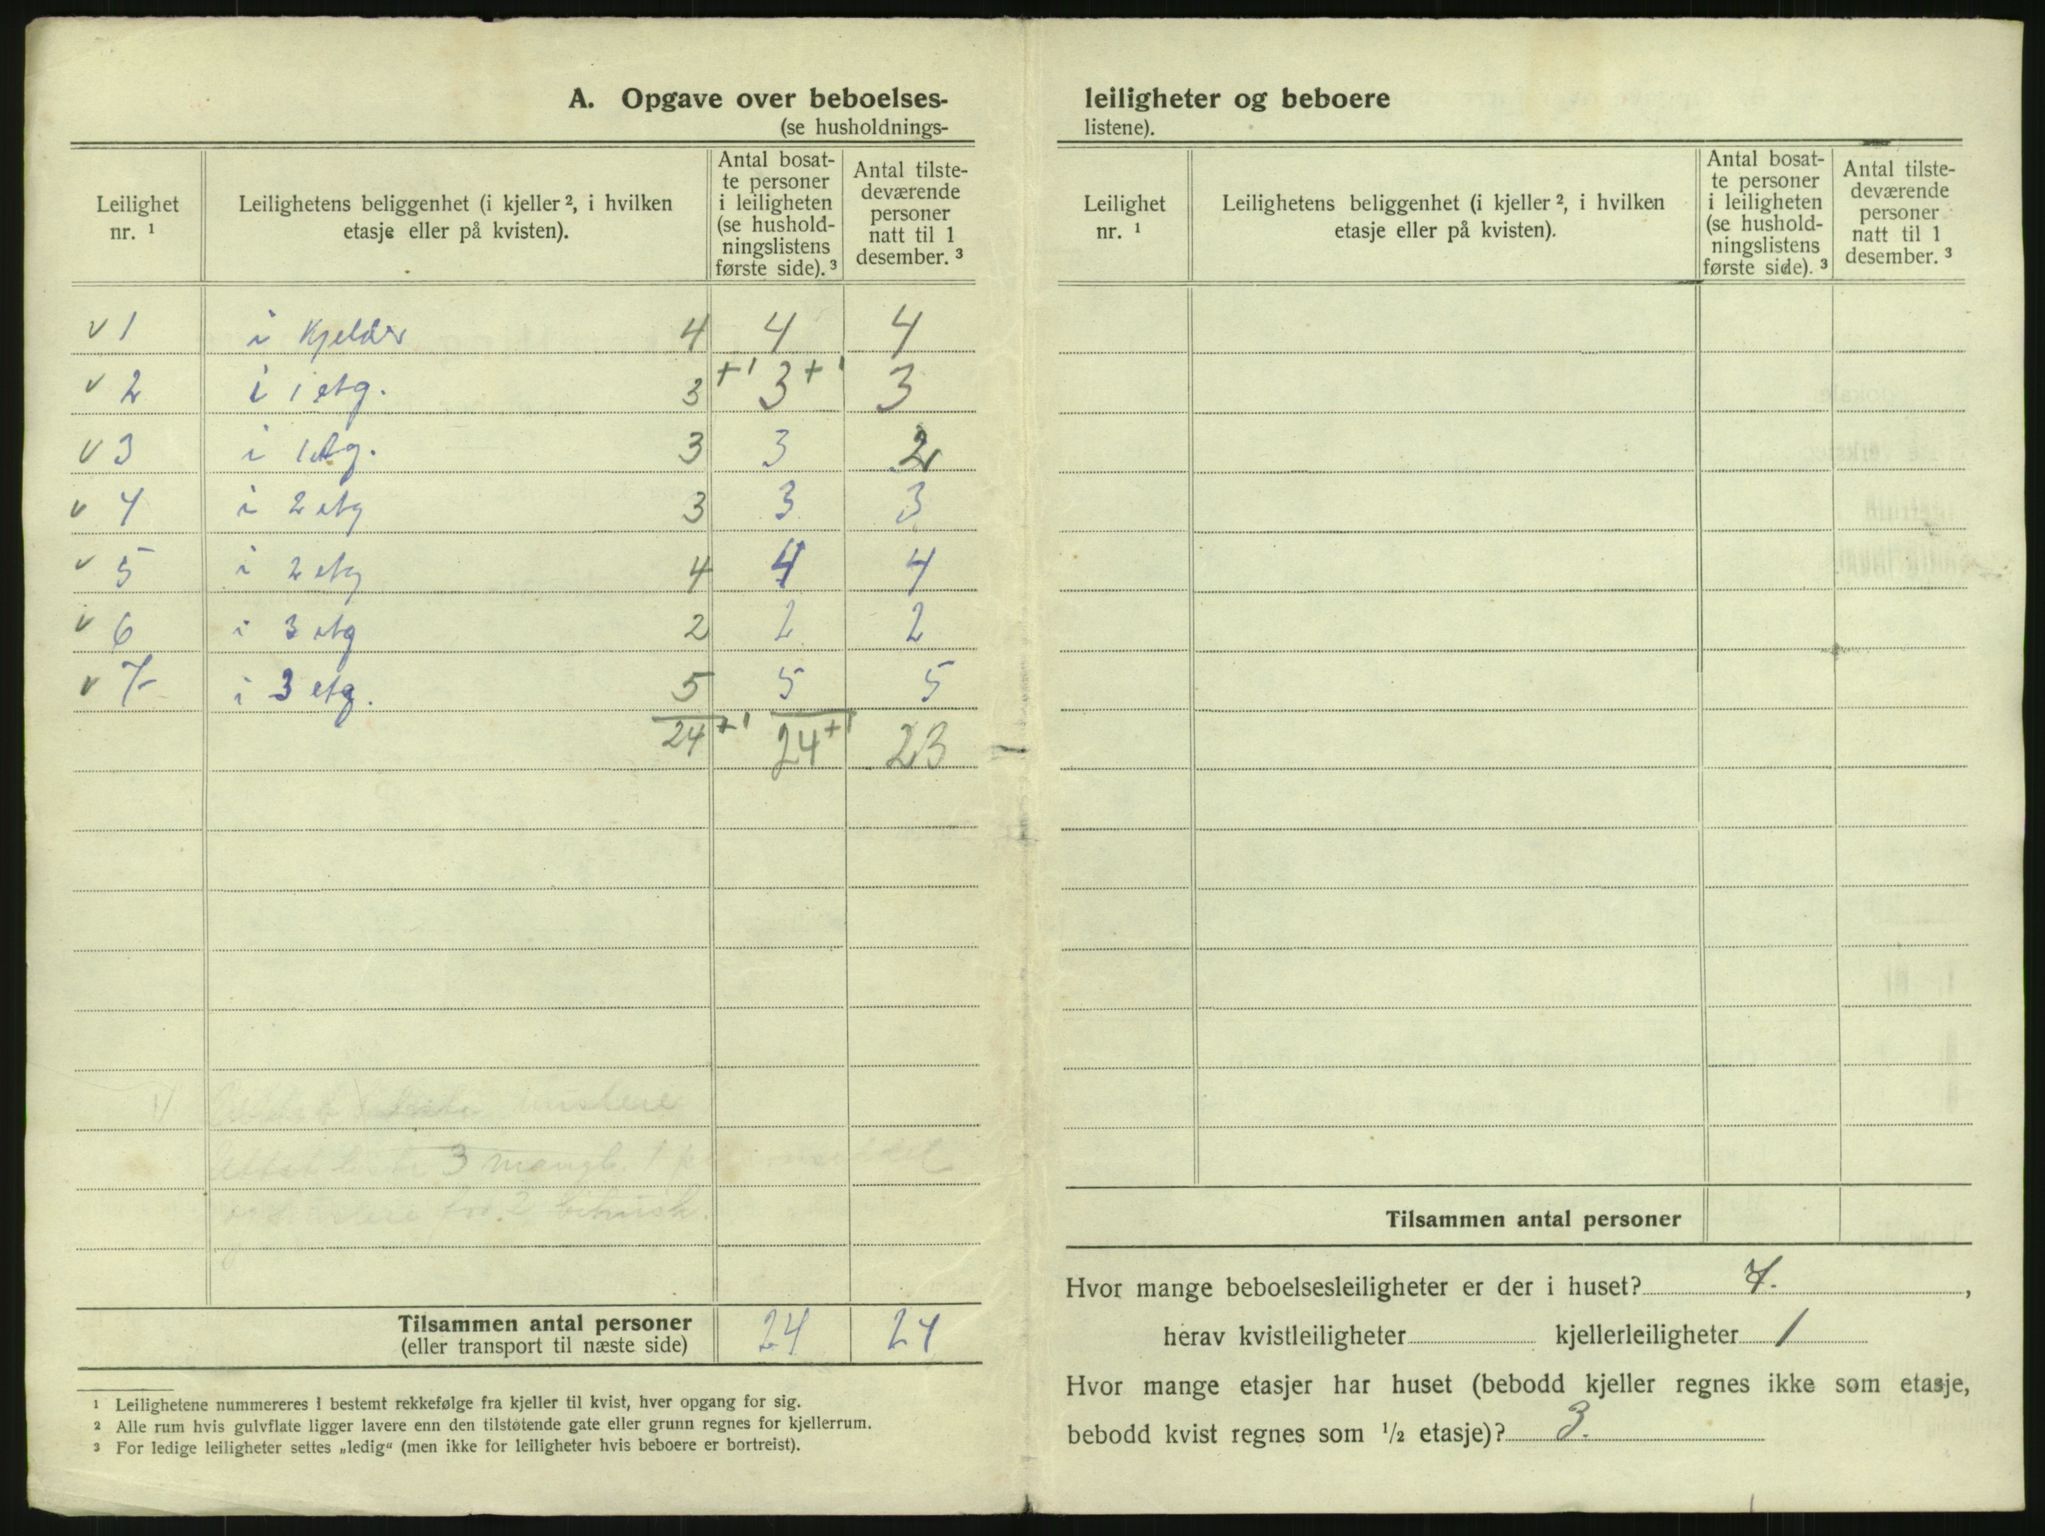 A. Opgave over beboelses-
(se husholdnings-
Leilighet nr. ¹
Leilighetens beliggenhet (i kjeller ², i hvilken etasje eller på kvisten).
Antal bosatte personer i leiligheten (se husholdningslistens første side). ³
Antal tilstedeværende personer natt til 1 desember. ³
v 1 i Kjelder 4 4 4
v 2 i 1 etg. 3 +1 3 +1 3
v 3 i 1 etg. 3 3 2
v 4 i 2 etg 3 3 3
v 5 i 2 etg 4 4 4
v 6 i 3 etg 2 2 2
v 7- i 3 etg. 5 5 5
24 +1 24 +1 23
1/
liste 3 mangl. 1
2
Tilsammen antal personer 24 24
(eller transport til næste side)
¹ Leilighetene nummereres i bestemt rekkefølge fra kjeller til kvist, hver opgang for sig.
² Alle rum hvis gulvflate ligger lavere enn den tilstøtende gate eller grunn regnes for kjellerrum.
³ For ledige leiligheter settes „ledig“ (men ikke for leiligheter hvis beboere er bortreist).
leiligheter og beboere
listene).
Leilighet nr. ¹
Leilighetens beliggenhet (i kjeller ², i hvilken etasje eller på kvisten).
Antal bosatte personer i leiligheten (se husholdningslistens første side). ³
Antal tilstedeværende personer natt til 1 desember. ³
Tilsammen antal personer
Hvor mange beboelsesleiligheter er der i huset? 7. ,
herav kvistleiligheter kjellerleiligheter 1
Hvor mange etasjer har huset (bebodd kjeller regnes ikke som etasje,
bebodd kvist regnes som ½ etasje)? 3.